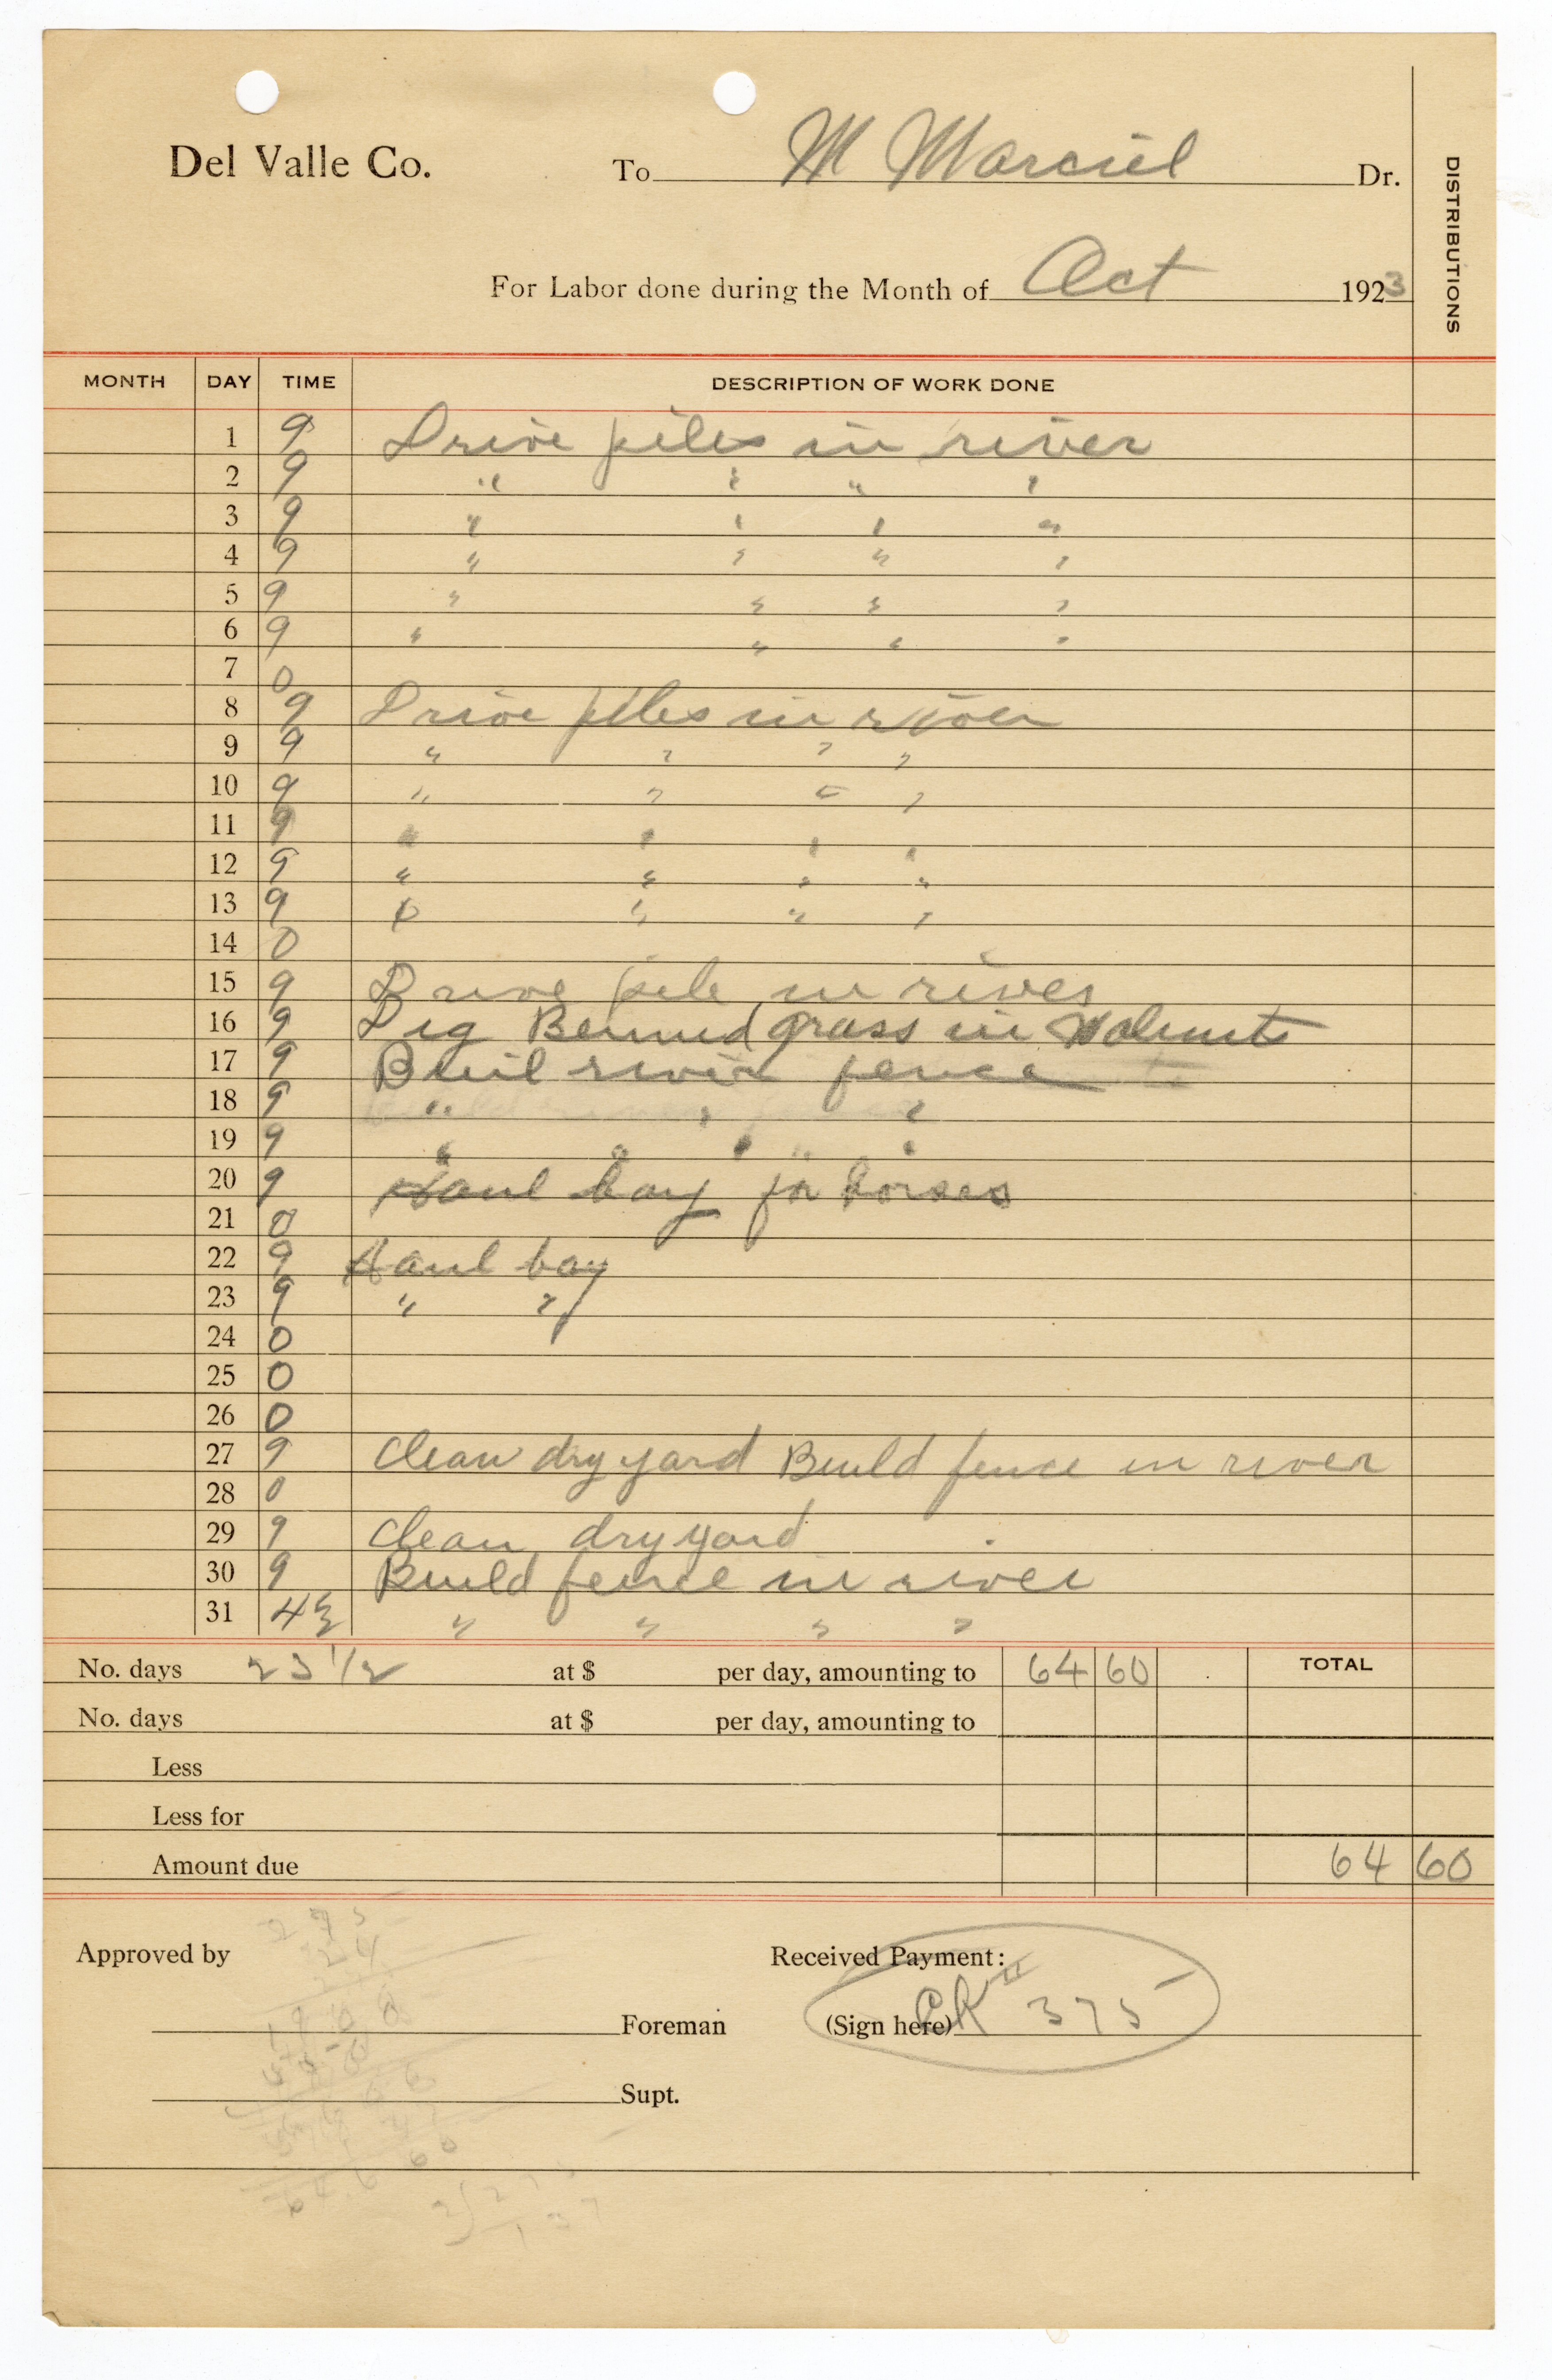 Del Valle Co. To M Marciel Dr.
DISTRIBUTIONS
For Labor done during the Month of Oct 1923
MONTH DAY TIME DESCRIPTION OF WORK DONE
1 9 Drive piles in river
2 9 " " " "
3 9 " " " "
4 9 " " " "
5 9 " " " "
6 9 " " " "
7 0
8 9 Drive piles in river
9 9 " " " "
10 9 " " " "
11 9 " " " "
12 9 " " " "
13 9 " " " "
14 0
15 9 Drive pile in river
16 9 Dig Bermud grass in Walnuts
17 9 Buil river fence
18 9 " " "
19 9 " " " "
20 9 Haul hay for horses
21 0
22 9 Haul hay
23 9 " "
24 0
25 0
26 0
27 9 Clean dry yard Build fence in river
28 0
29 9 Clean dry yard
30 9 Build fence in river
31 4½ " " " "
No. days 23 1/2 at $ per day, amounting to 64 60 TOTAL
No. days at $ per day, amounting to
Less
Less for
Amount due 64 60
Approved by Received Payment:
Foreman (Sign here) CK 375
Supt.